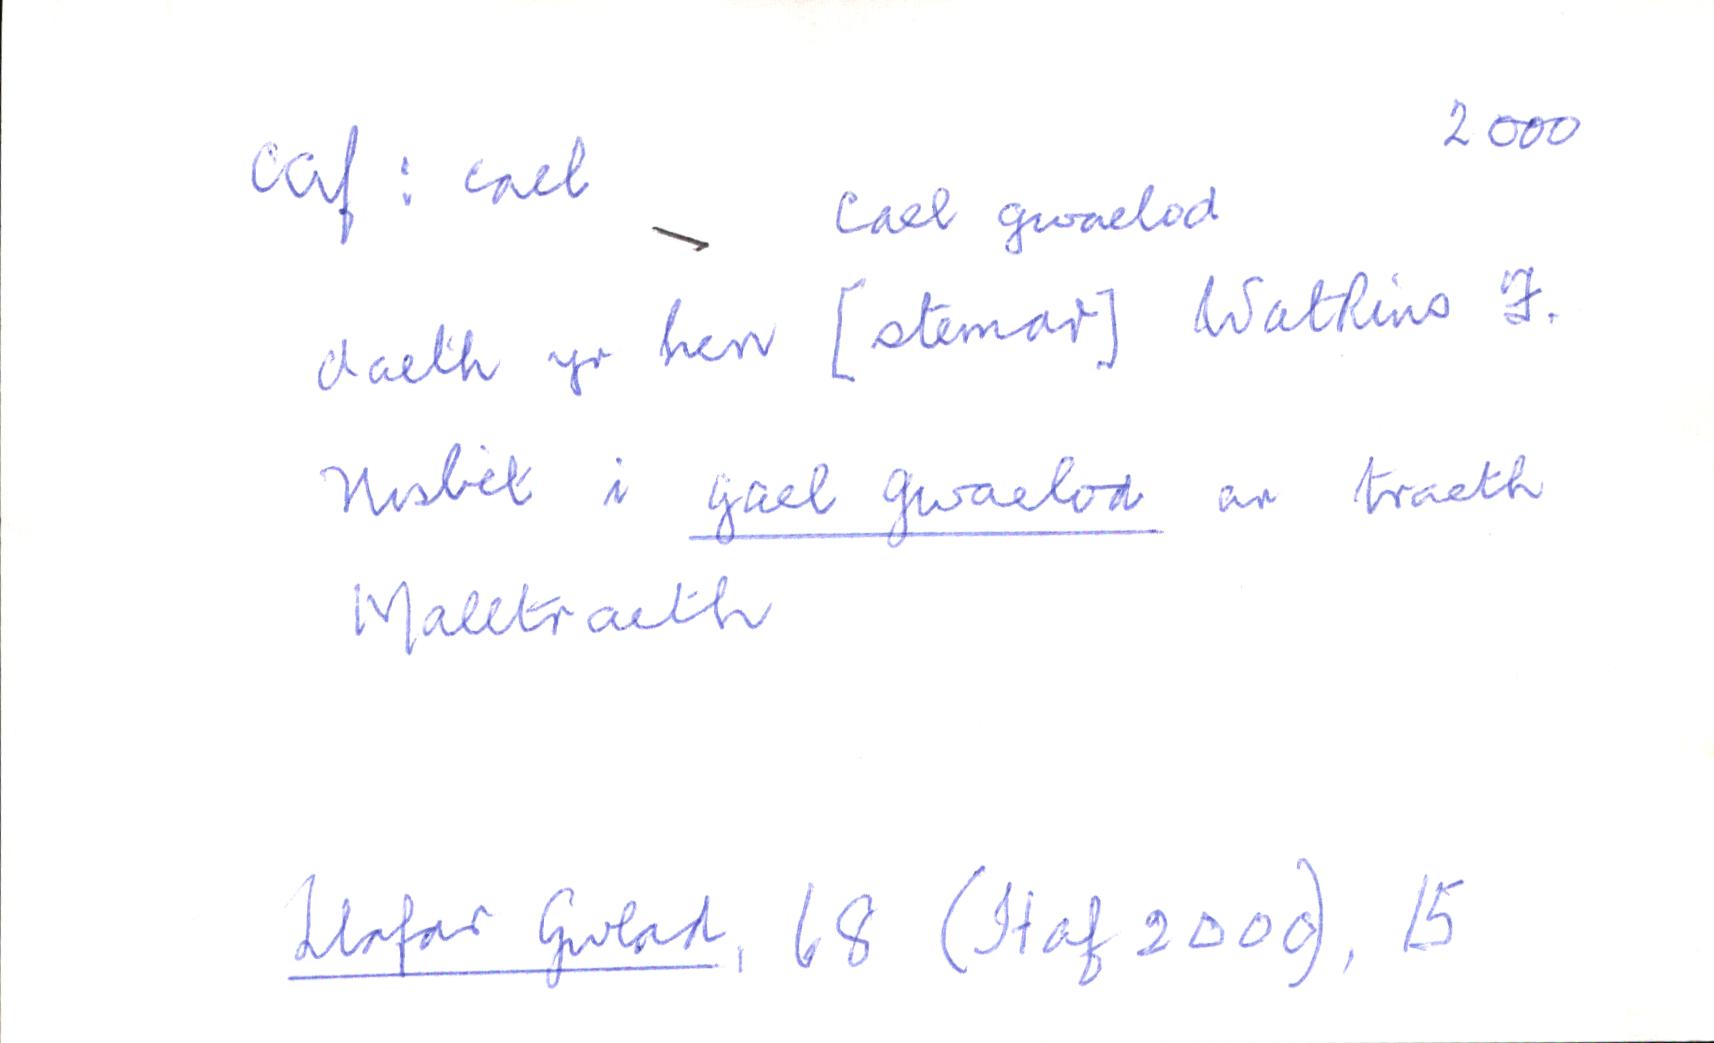 2000
caf : cael
cael gwaelod
daeth yr hen [stemar] Watkins F.
Nisbet i gael gwaelod ar traeth
Malltraeth
Llafar Gwlad, 68 (Haf 2000), 15